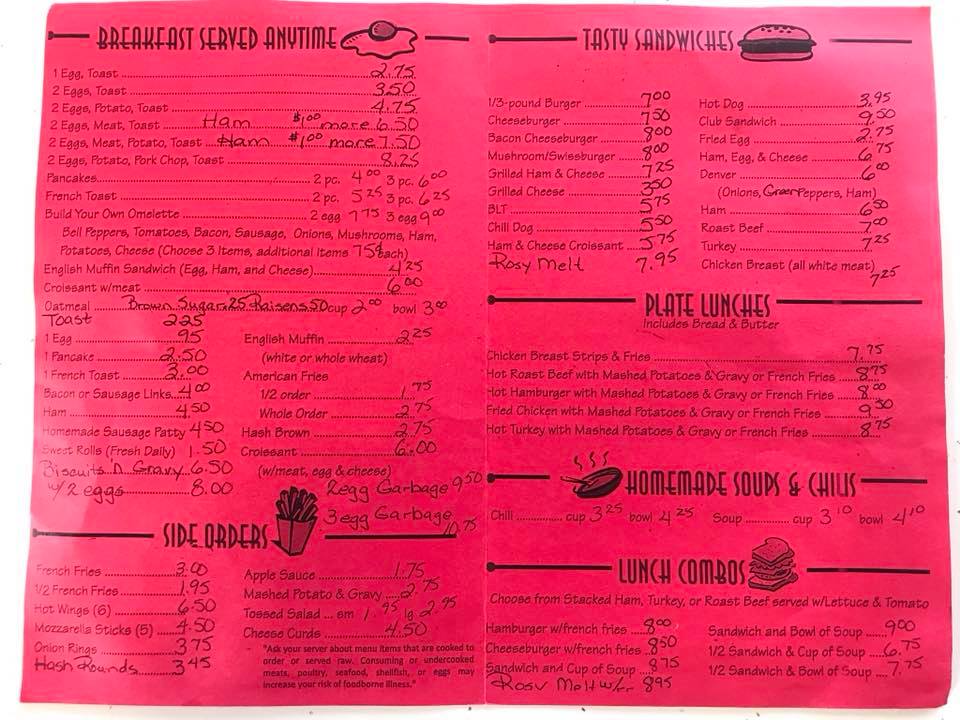 BREAKFAST SERVED ANYTIME
1 Egg, Toast 2.75
2 Eggs, Toast 3.50
2 Eggs, Potato, Toast 4.75
2 Eggs, Meat, Toast Ham $1.00 more 6.50
2 Eggs, Meat, Potato, Toast Ham $1.00 more 7.50
2 Eggs, Potato, Pork Chop, Toast 8.25
Pancakes 2 pc. 4.00 3 pc. 6.00
French Toast 2 pc. 5.25 3 pc. 6.25
Build Your Own Omelette 2 egg 7.75 3 egg 9.00
Bell Peppers, Tomatoes, Bacon, Sausage, Onions, Mushrooms, Ham,
Potatoes, Cheese (Choose 3 Items, additional items 75¢ each)
English Muffin Sandwich (Egg, Ham, and Cheese) 4.25
Croissant w/meat 6.00
Oatmeal Brown Sugar .25 Raisens 50 cup 2.00 bowl 3.00
Toast 2.25
1 Egg .95
1 Pancake 2.50
1 French Toast 3.00
Bacon or Sausage Links 4.00
Ham 4.50
Homemade Sausage Patty 4.50
Sweet Rolls (Fresh Daily) 1.50
Biscuits 'n Gravy 6.50
w/2 eggs 8.00
English Muffin 2.25
(white or whole wheat)
American Fries
1/2 order 1.75
Whole Order 2.75
Hash Brown 2.75
Croissant 6.00
(w/meat, egg & cheese)
2 egg Garbage 9.50
3 egg Garbage 10.75
SIDE ORDERS
French Fries 3.00
1/2 French Fries 1.95
Hot Wings (6) 6.50
Mozzarella Sticks (5) 4.50
Onion Rings 3.75
Hash Rounds 3.45
Apple Sauce 1.75
Mashed Potato & Gravy 2.75
Tossed Salad sm 1.95 lg 2.95
Cheese Curds 4.50
"Ask your server about menu items that are cooked to
order or served raw. Consuming or undercooked
meats, poultry, seafood, shellfish, or eggs may
increase your risk of foodborne illness."
TASTY SANDWICHES
1/3-pound Burger 7.00
Cheeseburger 7.50
Bacon Cheeseburger 8.00
Mushroom/Swissburger 8.00
Grilled Ham & Cheese 7.25
Grilled Cheese 3.50
BLT 5.75
Chili Dog 5.50
Ham & Cheese Croissant 5.75
Rosy Melt 7.95
Hot Dog 3.95
Club Sandwich 9.50
Fried Egg 2.75
Ham, Egg, & Cheese 6.75
Denver 6.00
(Onions, Green Peppers, Ham)
Ham 6.50
Roast Beef 7.00
Turkey 7.25
Chicken Breast (all white meat)
7.25
PLATE LUNCHES
Includes Bread & Butter
Chicken Breast Strips & Fries 7.75
Hot Roast Beef with Mashed Potatoes & Gravy or French Fries 8.75
Hot Hamburger with Mashed Potatoes & Gravy or French Fries 8.00
Fried Chicken with Mashed Potatoes & Gravy or French Fries 9.50
Hot Turkey with Mashed Potatoes & Gravy or French Fries 8.75
HOMEMADE SOUPS & CHILIS
Chili cup 3.25 bowl 4.25 Soup cup 3.10 bowl 4.10
LUNCH COMBOS
Choose from Stacked Ham, Turkey, or Roast Beef served w/Lettuce & Tomato
Hamburger w/french fries 8.00
Cheeseburger w/french fries 8.50
Sandwich and Cup of Soup 8.75
Rosy Melt w/FF 8.95
Sandwich and Bowl of Soup 9.00
1/2 Sandwich & Cup of Soup 6.75
1/2 Sandwich & Bowl of Soup 7.75